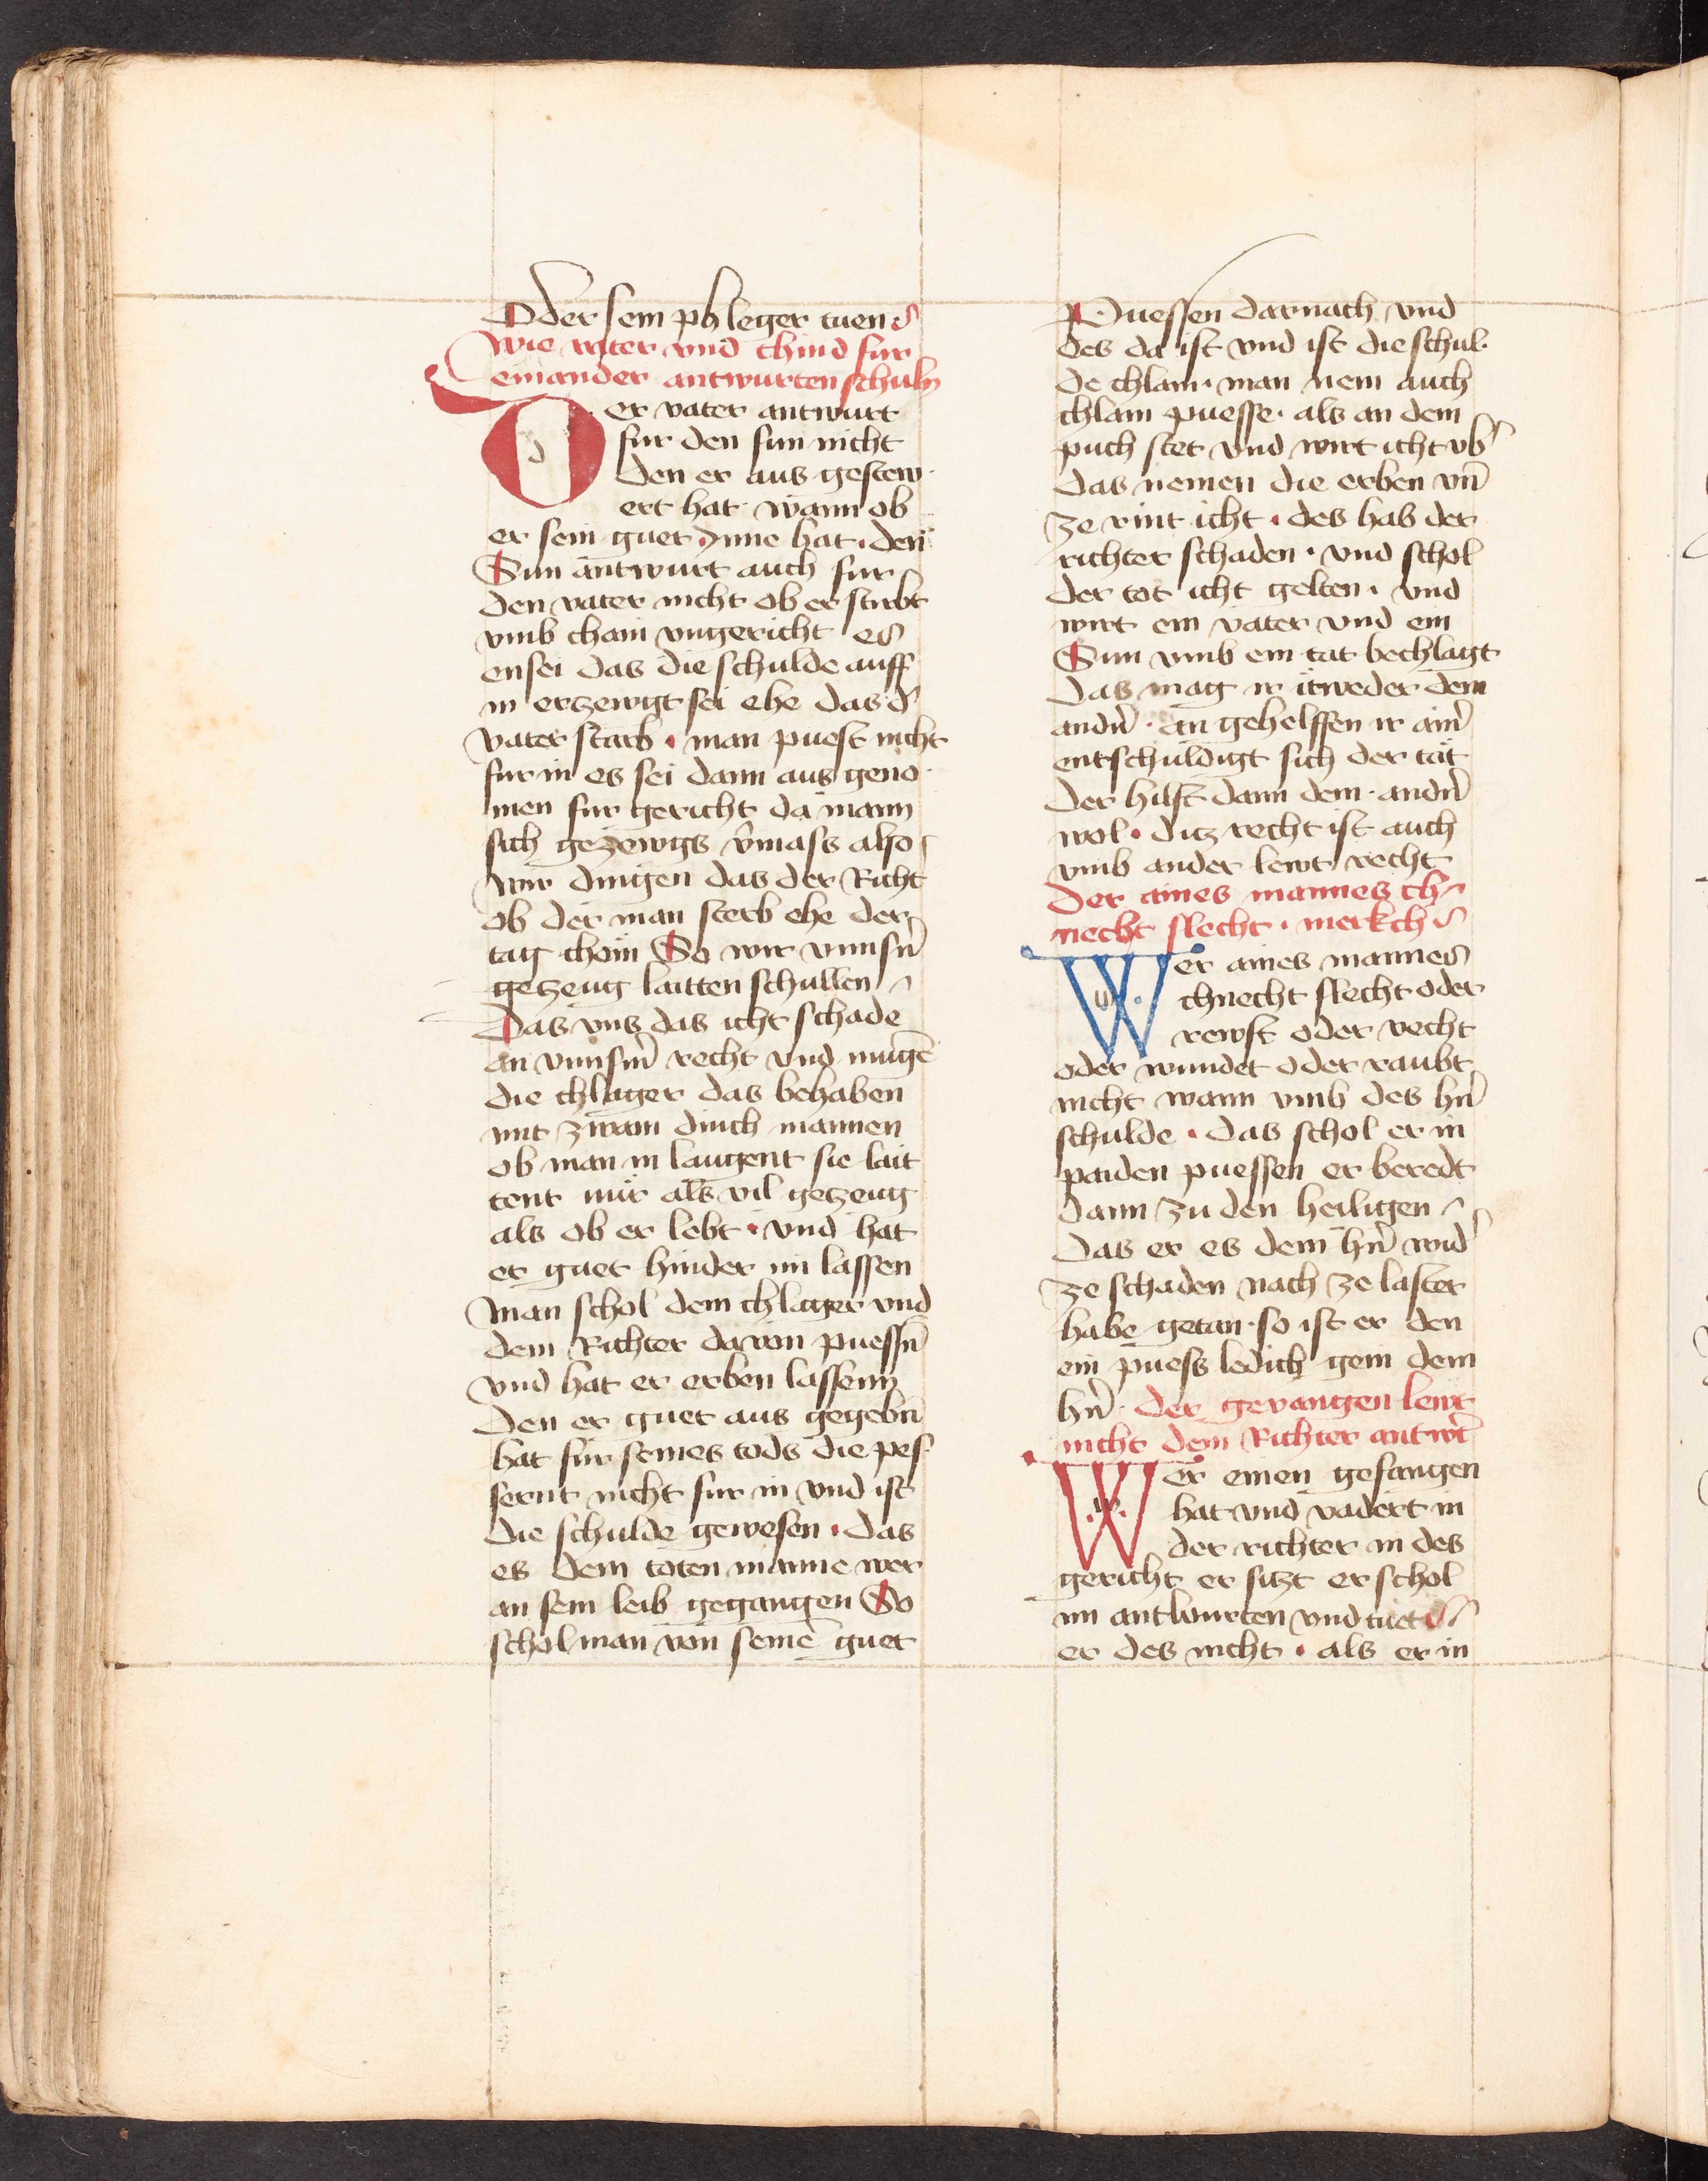 Oder sein phleger tuen
Wie vater vnd chind fur
einander antwurten schuln
Der vater antwurt
fur den sun nicht
den er aus gestew·
ert hat· wann ob
er sein guet ynne hat · den
Sun antwurt auch fur
den vater nicht ob er stirbt
vmb chain vngericht es
ensei das die schulde auff
in erzewgt sei ehe das d᾽
vater starb · man puest nicht
fur in es sei dann aus geno·
men fur gericht da mann
sich gezewgs v᾽mass also
wir dingen das der Richt
ob der man sterb ehe der
tag chom So wir vnnsn᾽
getzeug laitten schullen
Das vns das icht schade
an vnnsm᾽ recht vnd mugē
die chlager das behaben
mit zwain dinch mannen
ob man in laugent sie lait
tent mir als vil getzeug
als ob er lebt · vnd hat
er guet hinder im lassen
man schol dem chlager vnd
dem Richter da von puessn᾽
vnd hat er erben lassenn
den er guet aus gegebn᾽
hat fur seines tods die pes·
sernt nicht fur in vnd ist
die schulde gewesen · das
es dem toten manne wer
an sein leib gegangen So
schol man von seinē guet
Puessen darnach vnd
des da ist vnd ist die schul·
de chlain· man nem auch
chlain puesse· als an dem
puch stet vnd wirt icht vb᾽
das nemen die erben vn̄
ze rint icht · des hab der
richter schaden · vnd schol
der tot icht gelten · vnd
wirt ein vater vnd ein
Sun vmb ein tat bechlagt
das mag ir itweder dem
andn᾽ · an gehelffen ir ain᾽
entschuldigt sich der tat
der hilft dann dem · andn᾽
wol · ditz recht ist auch
vmb ander lewt recht
Der aines mannes ch
necht slecht · merkch
Wer aines mannes
chnecht slecht oder
rewft oder vecht
oder wundet oder raubt
nicht wann vmb des hn᾽
schulde · das schol er in
paiden puessen er beredt
dann zu den heiligen
Das er es dem hn᾽ wid᾽
ze schaden nach ze laster
habe getan · so ist er den
ein puess ledich gein dem
hn᾽ · der gevangen lewt
nicht dem Richter antwt᾽
Wer einen gefangen
hat vnd vadert in
der richter in des
gericht er sitzt er schol
im antwurten vnd tuet
er des nicht · als er in